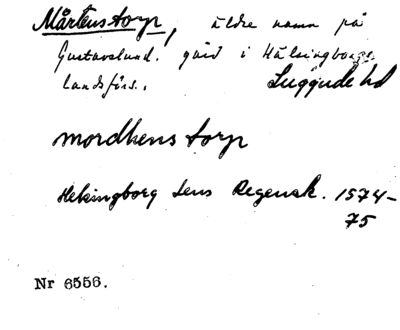 Mårtenstorp, äldre namn på
Gustavslund. gård i Hälsingborgs
landsförs., Luggude hd
mordhens torp
Helsingborg Lens Regensk. 1574-
75
Nr 6556.